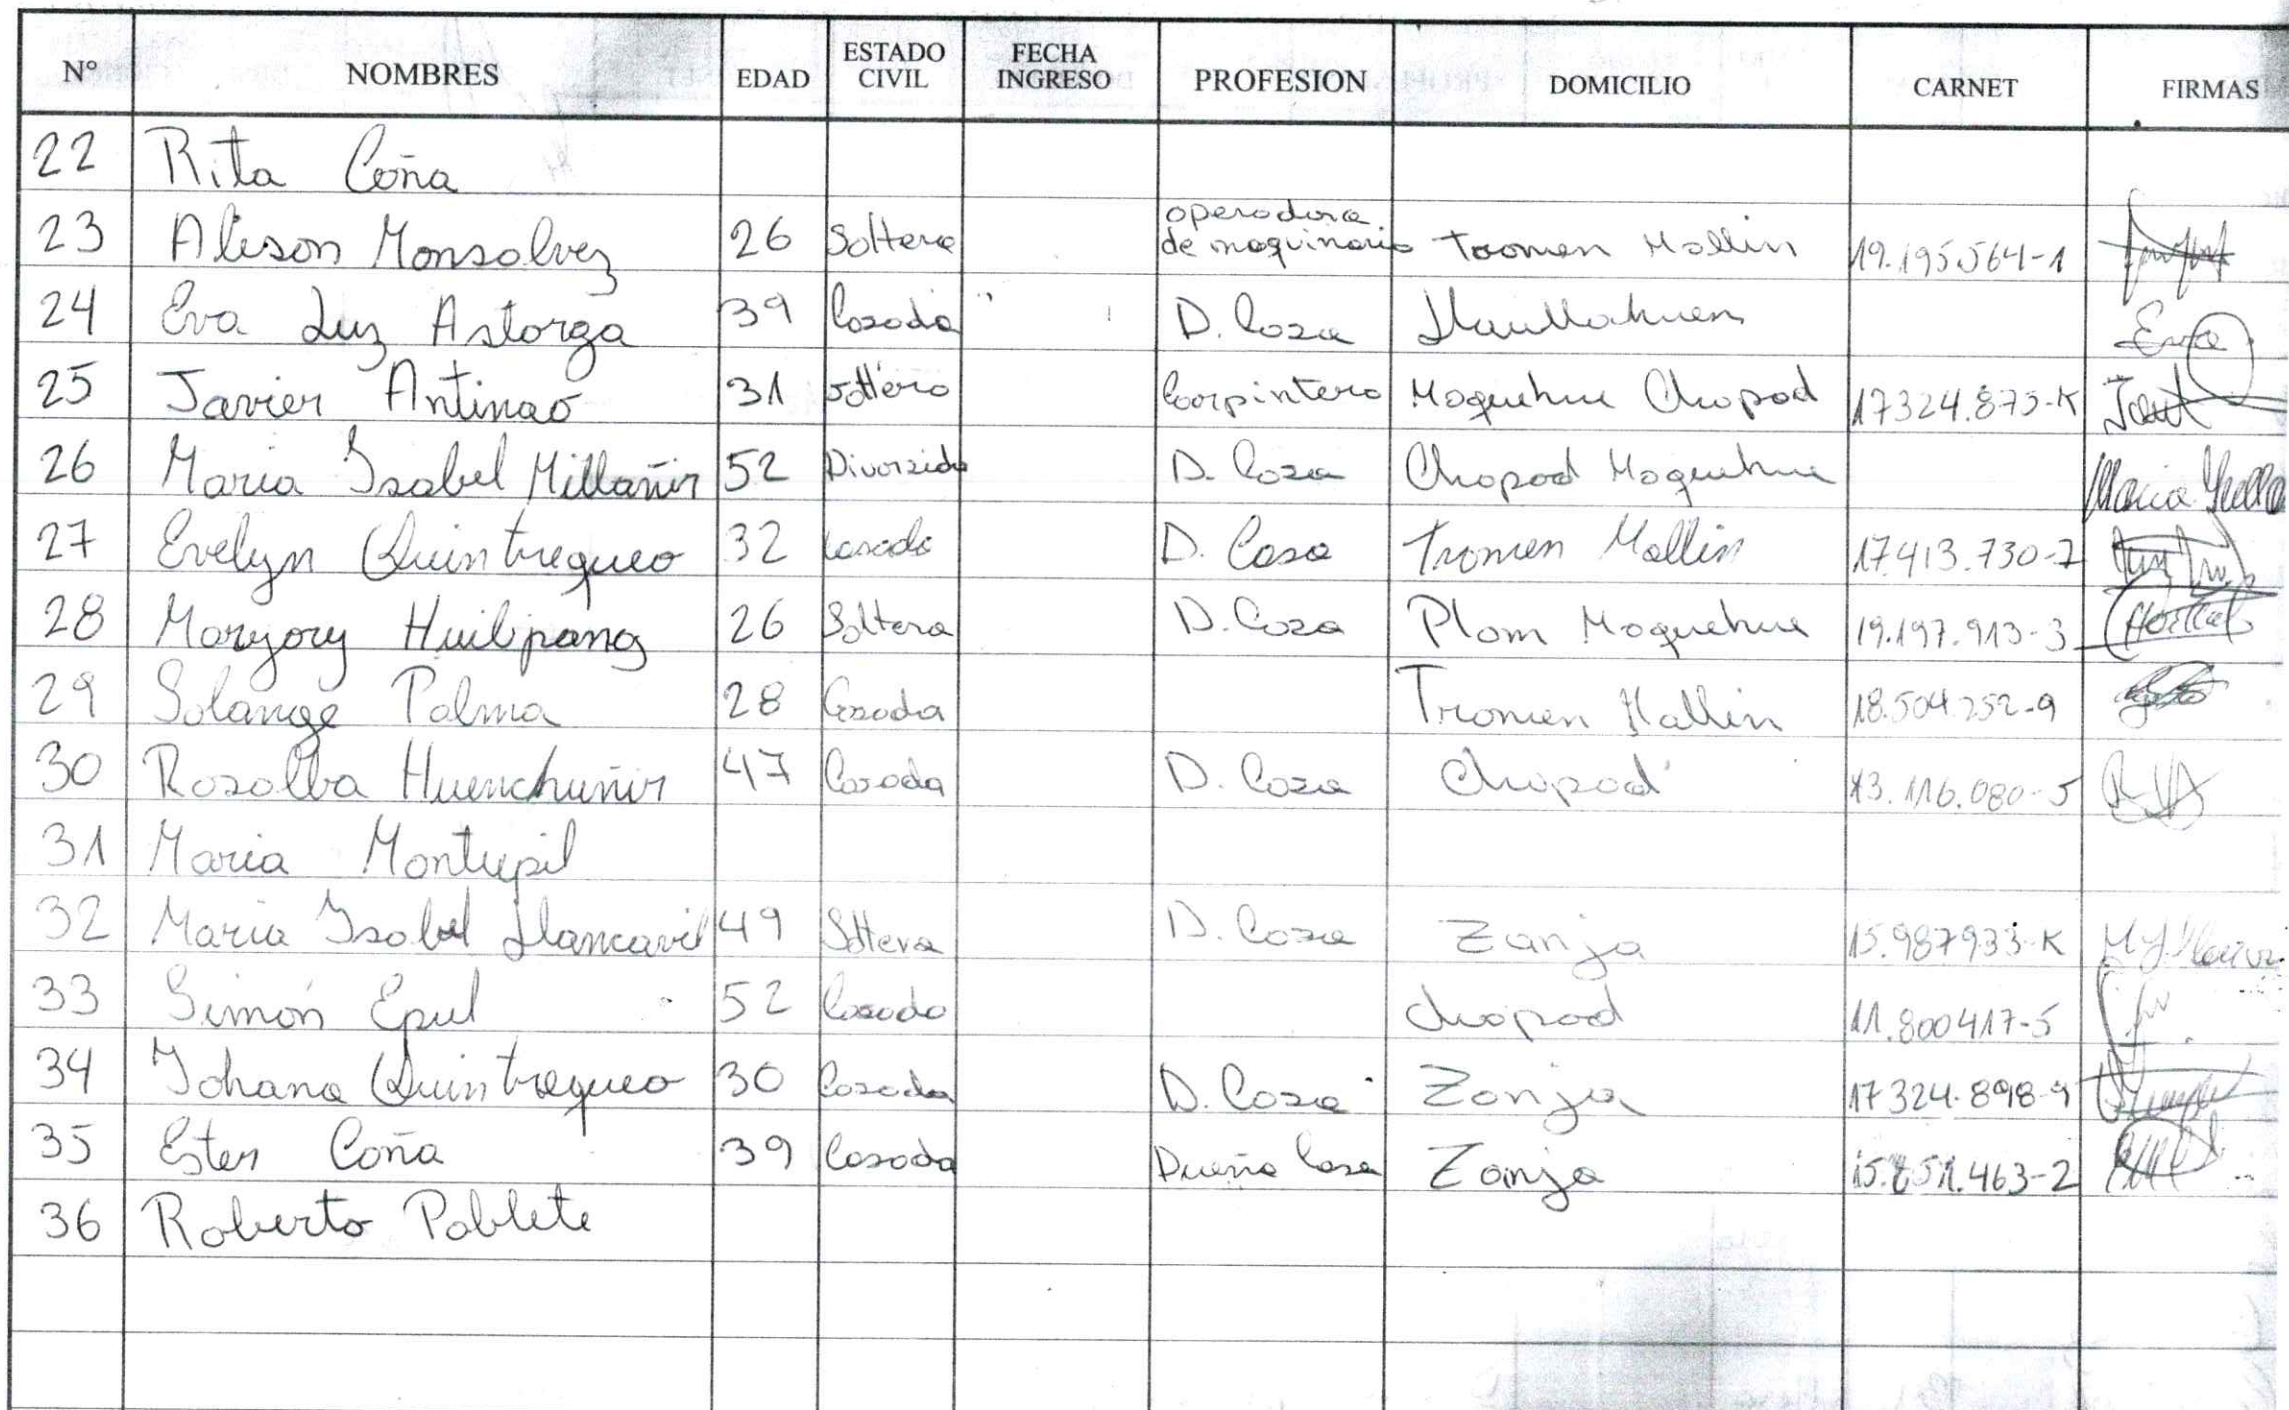 N° NOMBRES EDAD ESTADO CIVIL FECHA INGRESO PROFESION DOMICILIO CARNET FIRMAS
22 Rita Coña
23 Alison Monsalvez 26 Soltera operadora de maquinaria Tromen Mallin 19.195.564-1
24 Eva Luz Astorga 39 Casada D. Casa Llaullahuen Eva
25 Javier Antinao 31 Soltero Carpintero Maquehue Chapod 17324.875-K
26 Maria Isabel Millañir 52 Divorsida D. Casa Chapod Maquehue Maria
27 Evelyn Quintrequeo 32 Casada D. Casa Tromen Mallin 17.413.730-7
28 Maryory Huilipang 26 Soltera D. Casa Plom Maquehue 19.197.913-3
29 Solange Palma 28 Casada Tromen Mallin 18.504.252-9
30 Rosalba Huenchuñir 47 Casada D. Casa Chapod 13.116.080-5
31 Maria Montupil
32 Maria Isabel Llancavil 49 Soltera D. Casa Zanja 15.987933-K
33 Simón Epul 52 Casado Chapod 11.800417-5
34 Johana Quintrequeo 30 Casada D. Casa Zanja 17324.898-9
35 Ester Coña 39 Casada Dueña Casa Zanja
36 Roberto Poblete